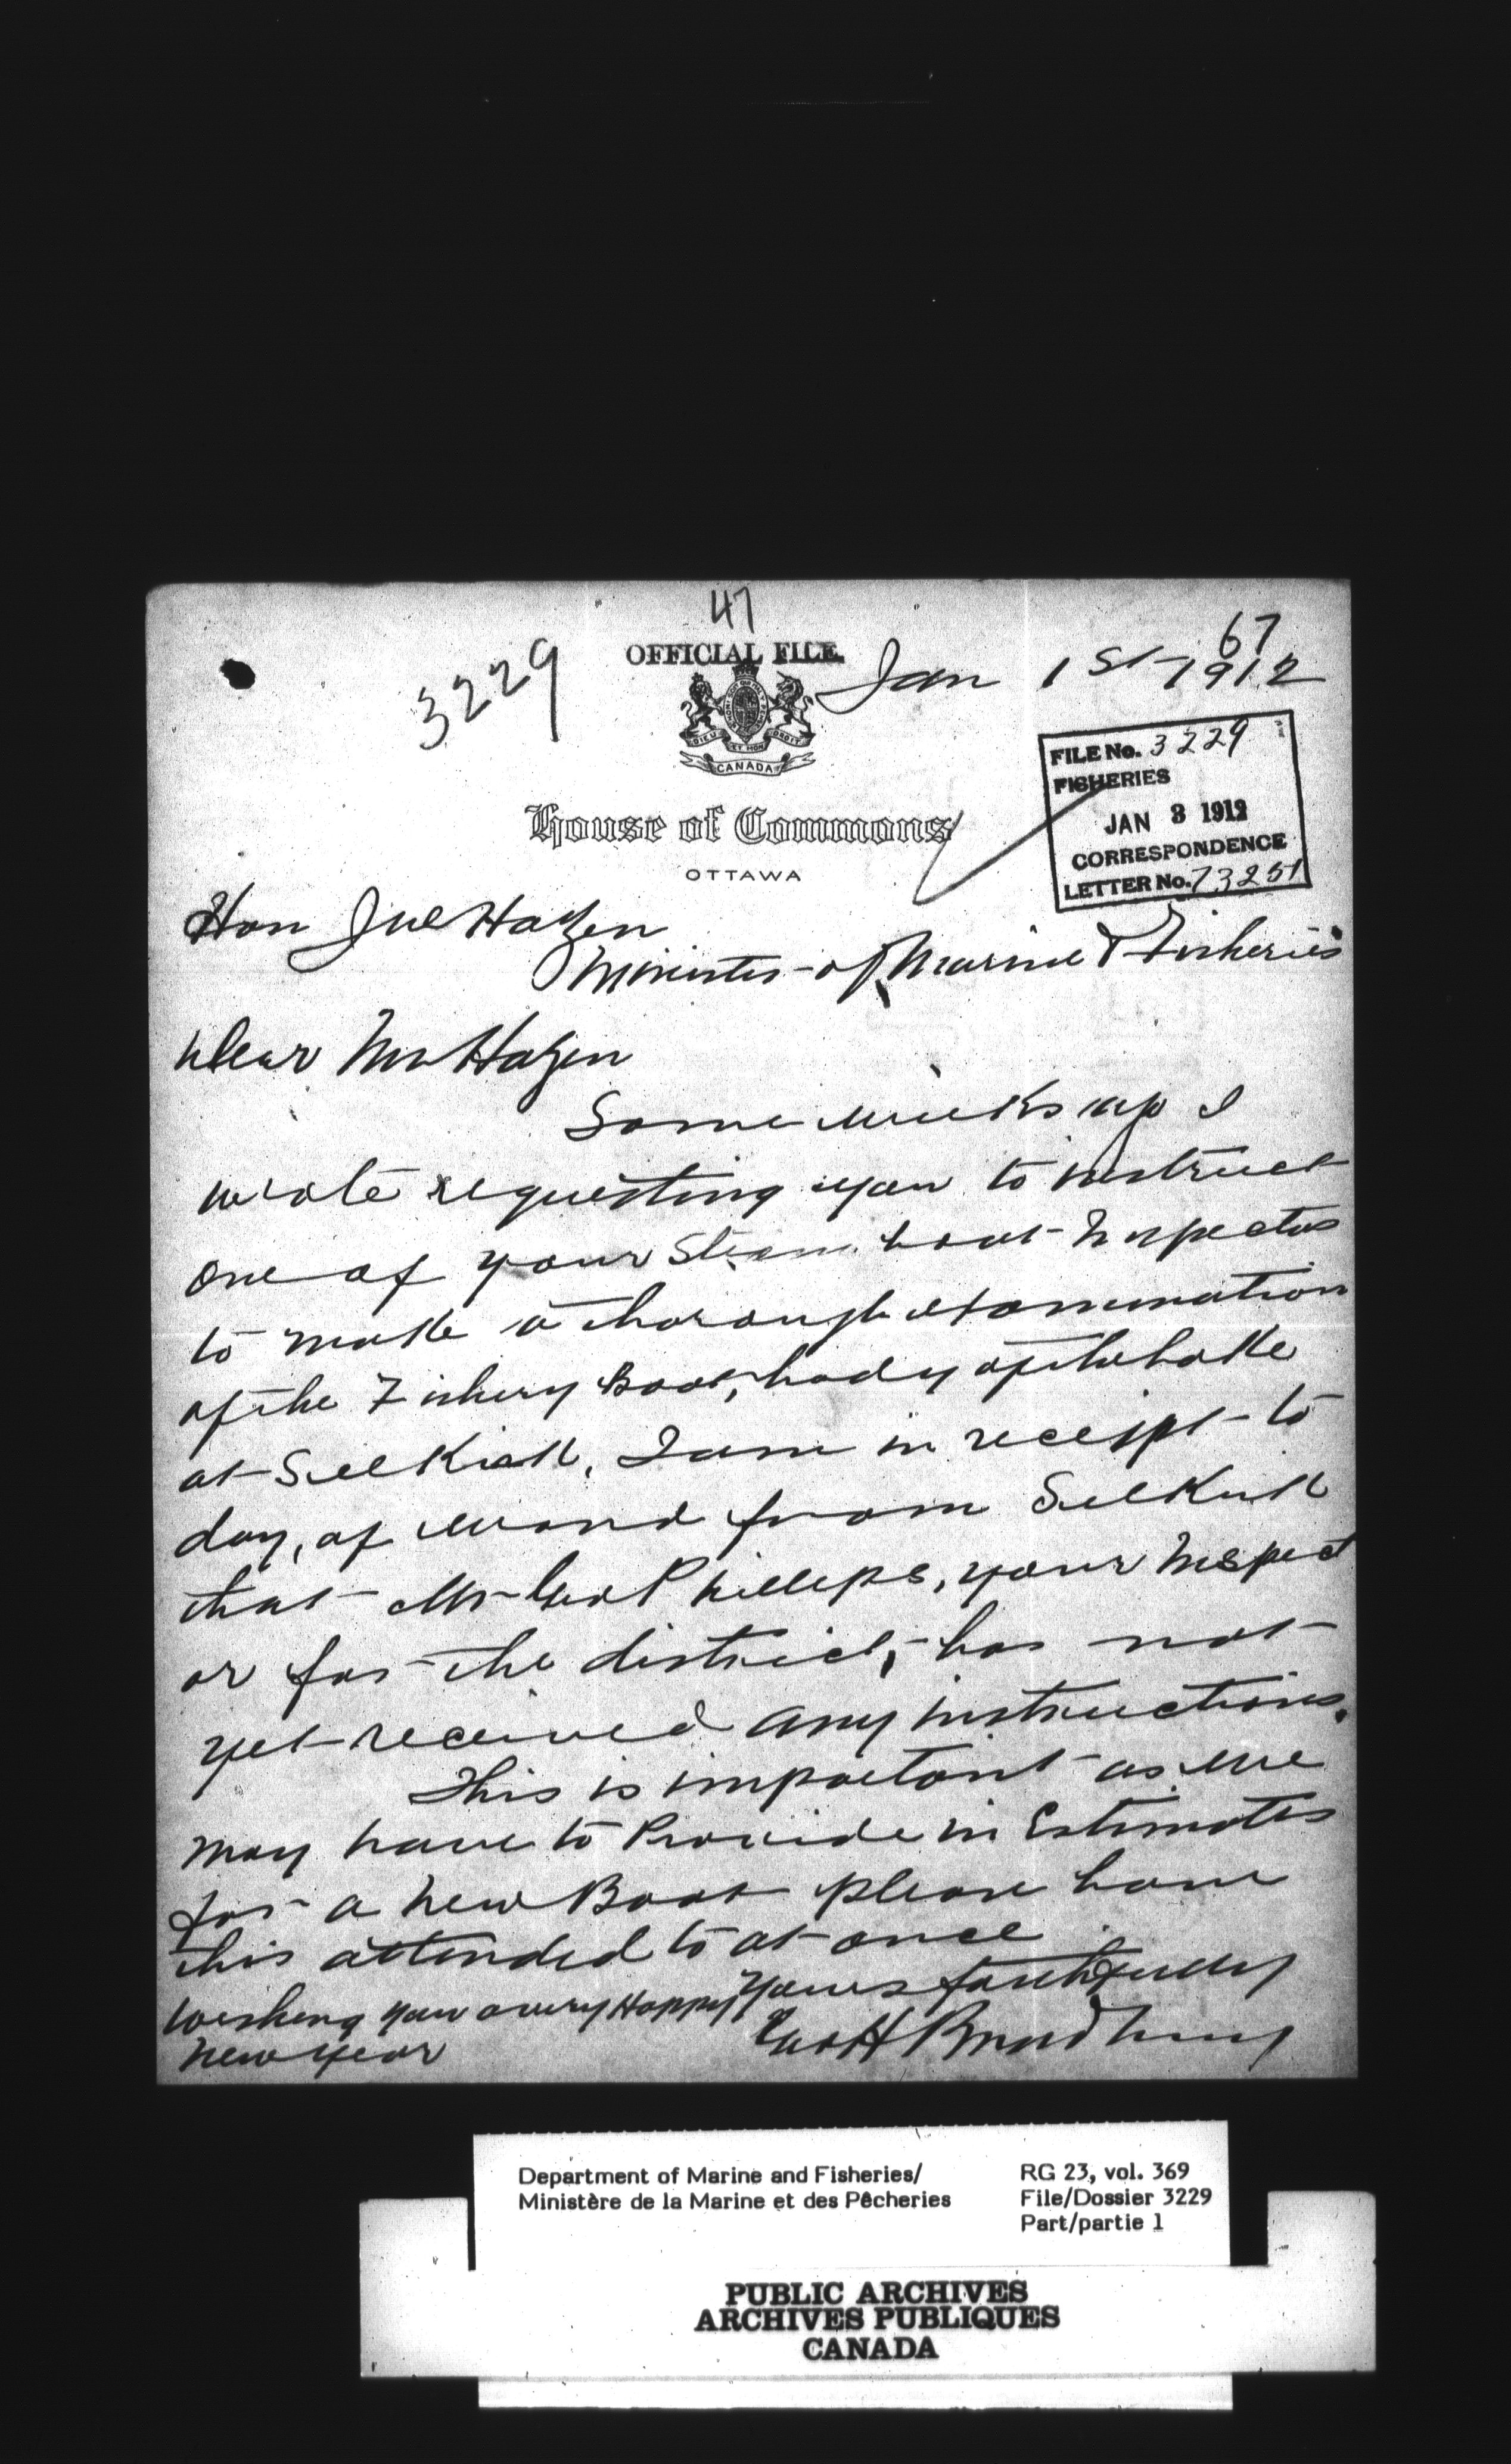 47
67
3229
OFFICIAL FILE.
Jan 1st 1912
DIEU ET MON DROIT
CANADA
FILE No. 3229
FISHERIES
JAN 3 1912
CORRESPONDENCE
LETTER No. 73251
House of Commons
OTTAWA
Hon J Hazen
Minister of Marine & Fisheries
Dear Mr Hazen
Some weeks ago I
wrote requesting you to instruct
one of your Steam boat Inspectors
to make a thorough examination
of the Fishery Boat, Lady of the Lake
at Selkirk, I am in receipt to
day, of word from Selkirk
that Mr Geo Phillips, your Inspect
or for the district, has not
yet received any instructions.
This is important as we
may have to Provide in Estimates
for a new Boat please have
this attended to at once
Yours faithfully
Wishing you a very Happy
New Year
Geo H Bradbury
Department of Marine and Fisheries/
Ministère de la Marine et des Pêcheries
RG 23, vol. 369
File/Dossier 3229
Part/partie 1
PUBLIC ARCHIVES
ARCHIVES PUBLIQUES
CANADA